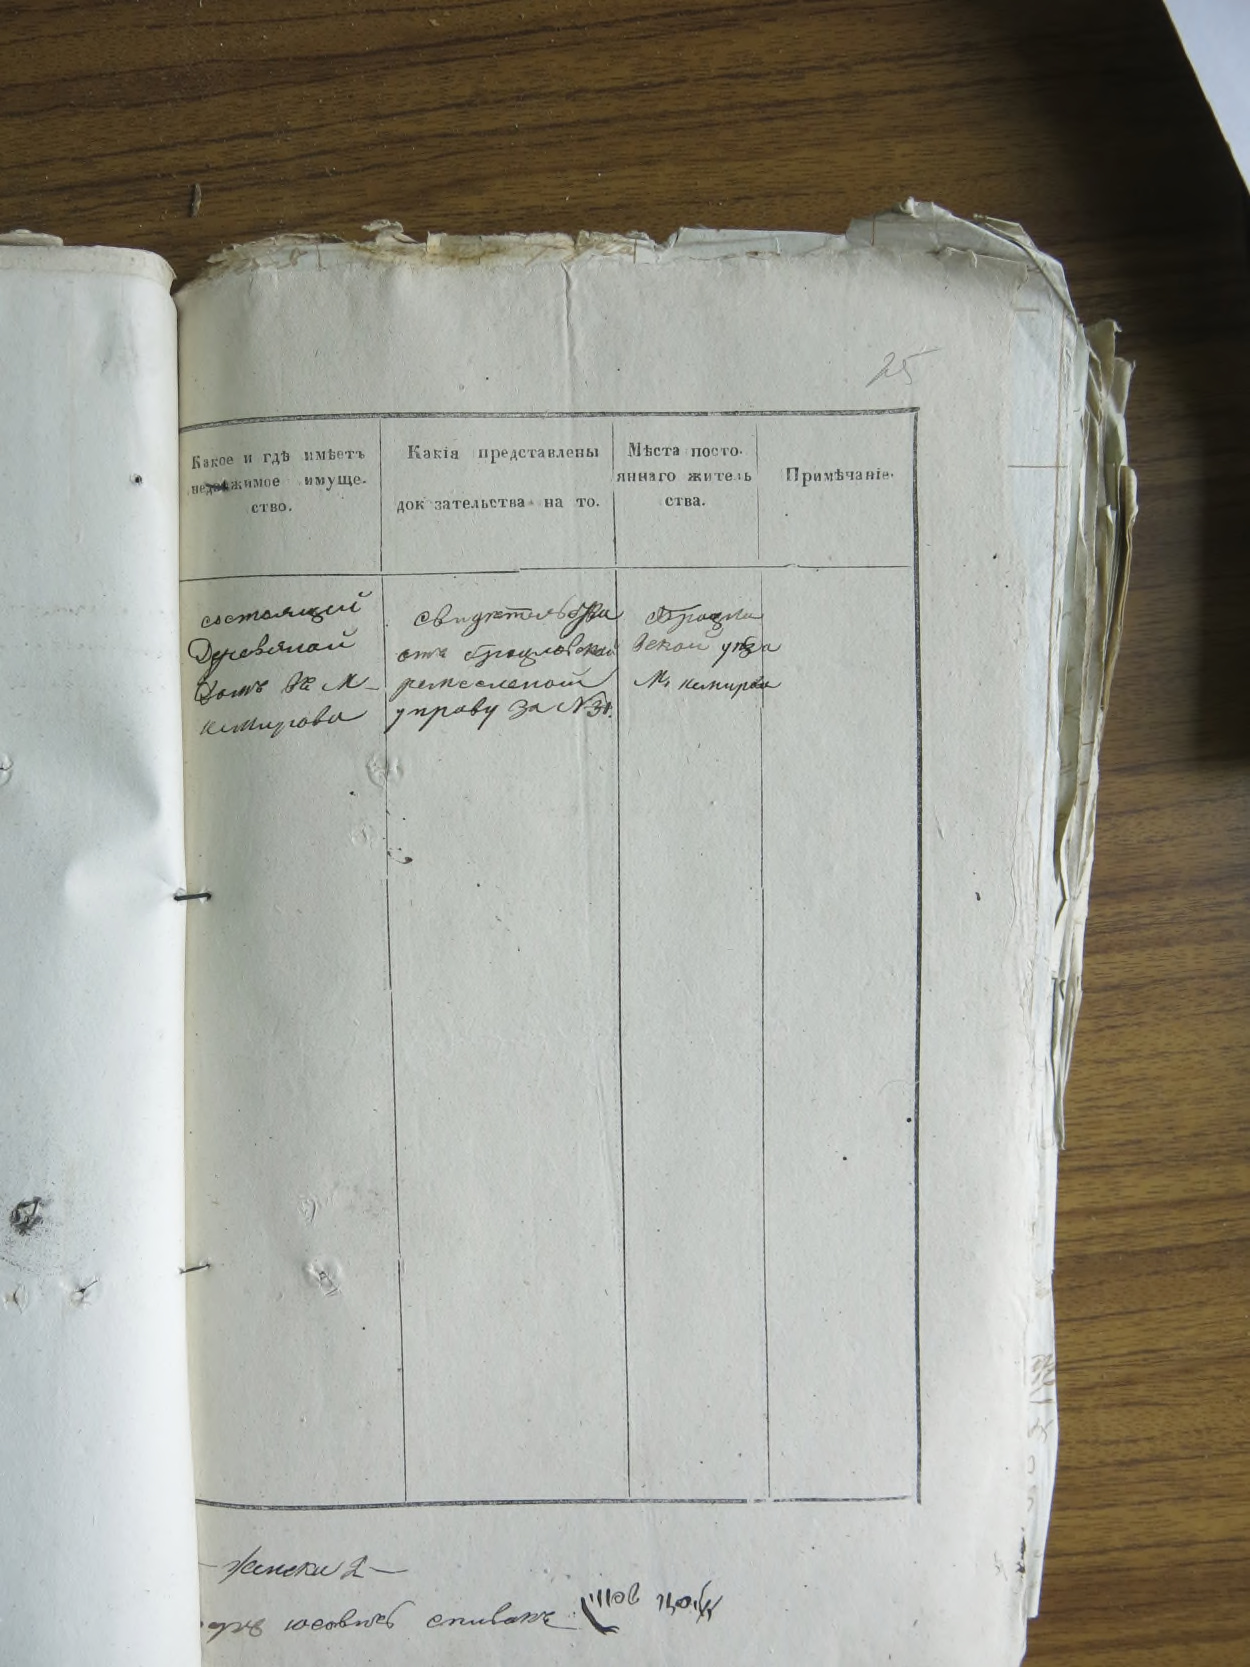 25
Какое и гдѣ имѣетъ
недвижимое имуще-
ство.
Какія представлены
док зательства на то.
Мѣста посто-
яннаго житель
ства.
Примѣчаніе.
состоящий
Деревяной
Домъ Въ М-
немирова
свидѣтельства
отъ Брацловской
ремесленой
управу за №31.
Брацла
вской уѣзда
М. немирова
женска 2
юсовичъ спивакъ